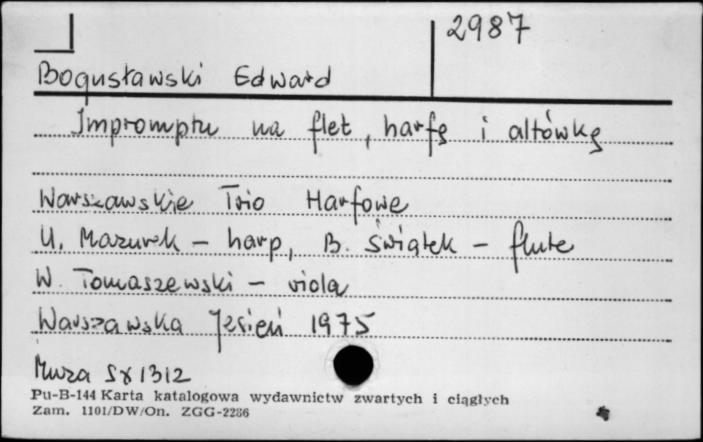 2987
Bogusławski Edward
Impromptu na flet, harfę i altówkę
Warszawskie Trio Harfowe
U. Mazurek - harp, B. Świątek - flute
W. Tomaszewski - viola
Warszawska Jesień 1975
Muza SX 1312
Pu-B-144 Karta katalogowa wydawnictw zwartych i ciągłych
Zam. 1101/DW/On. ZGG-2286